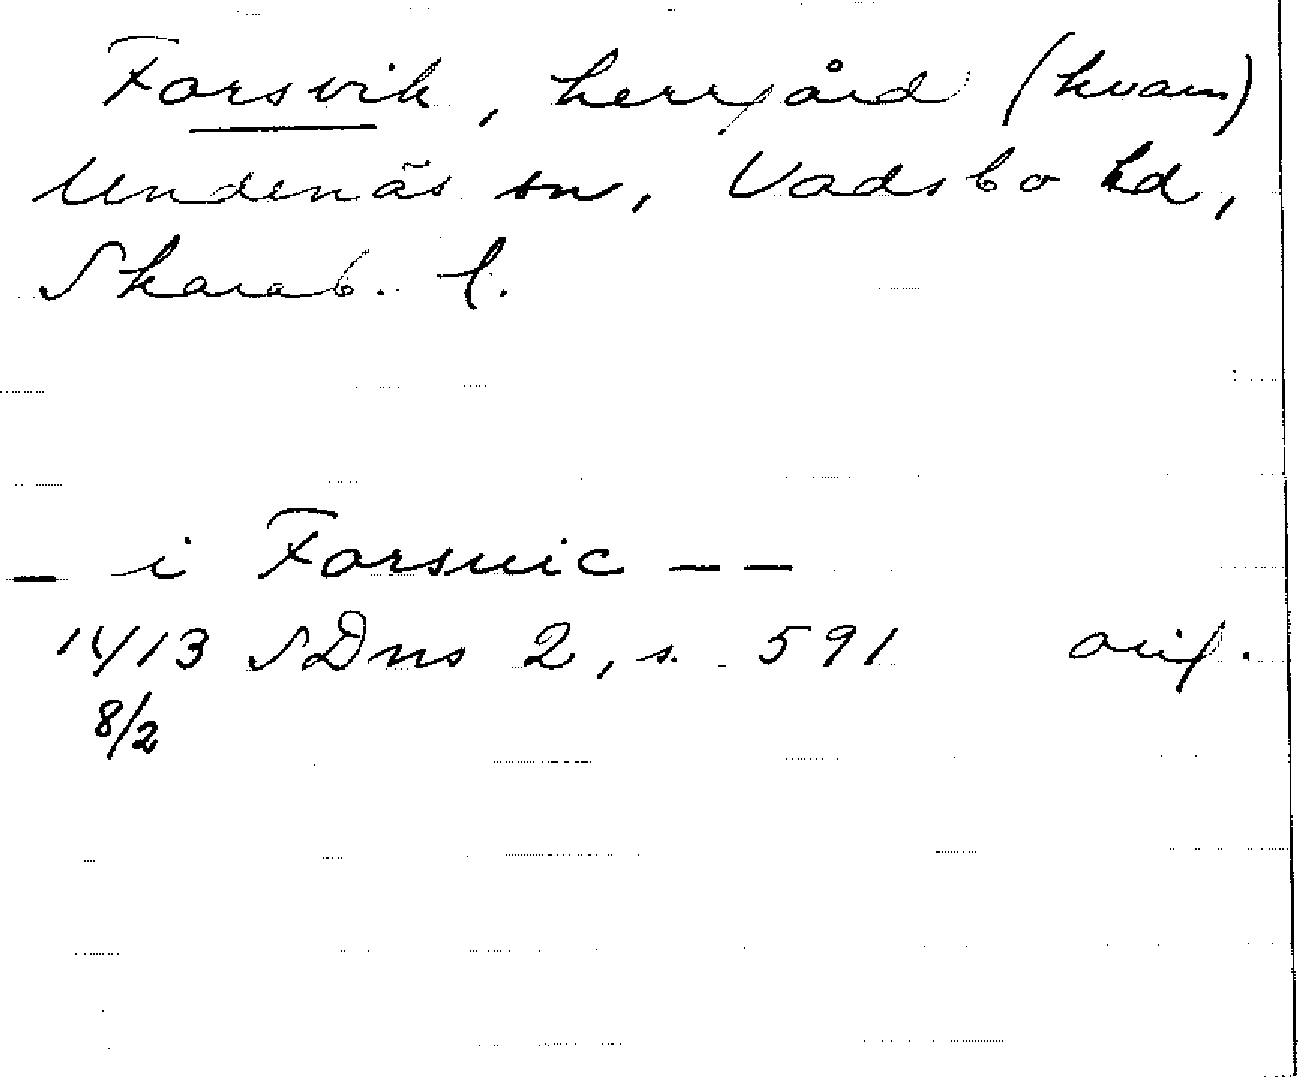 Forsvik, herrgård (kvarn)
Undenäs sn, Vadsbo hd,
Skarab. l.
– i Forsuic – –
1413 SDns 2, s. 591 orig.
8/2